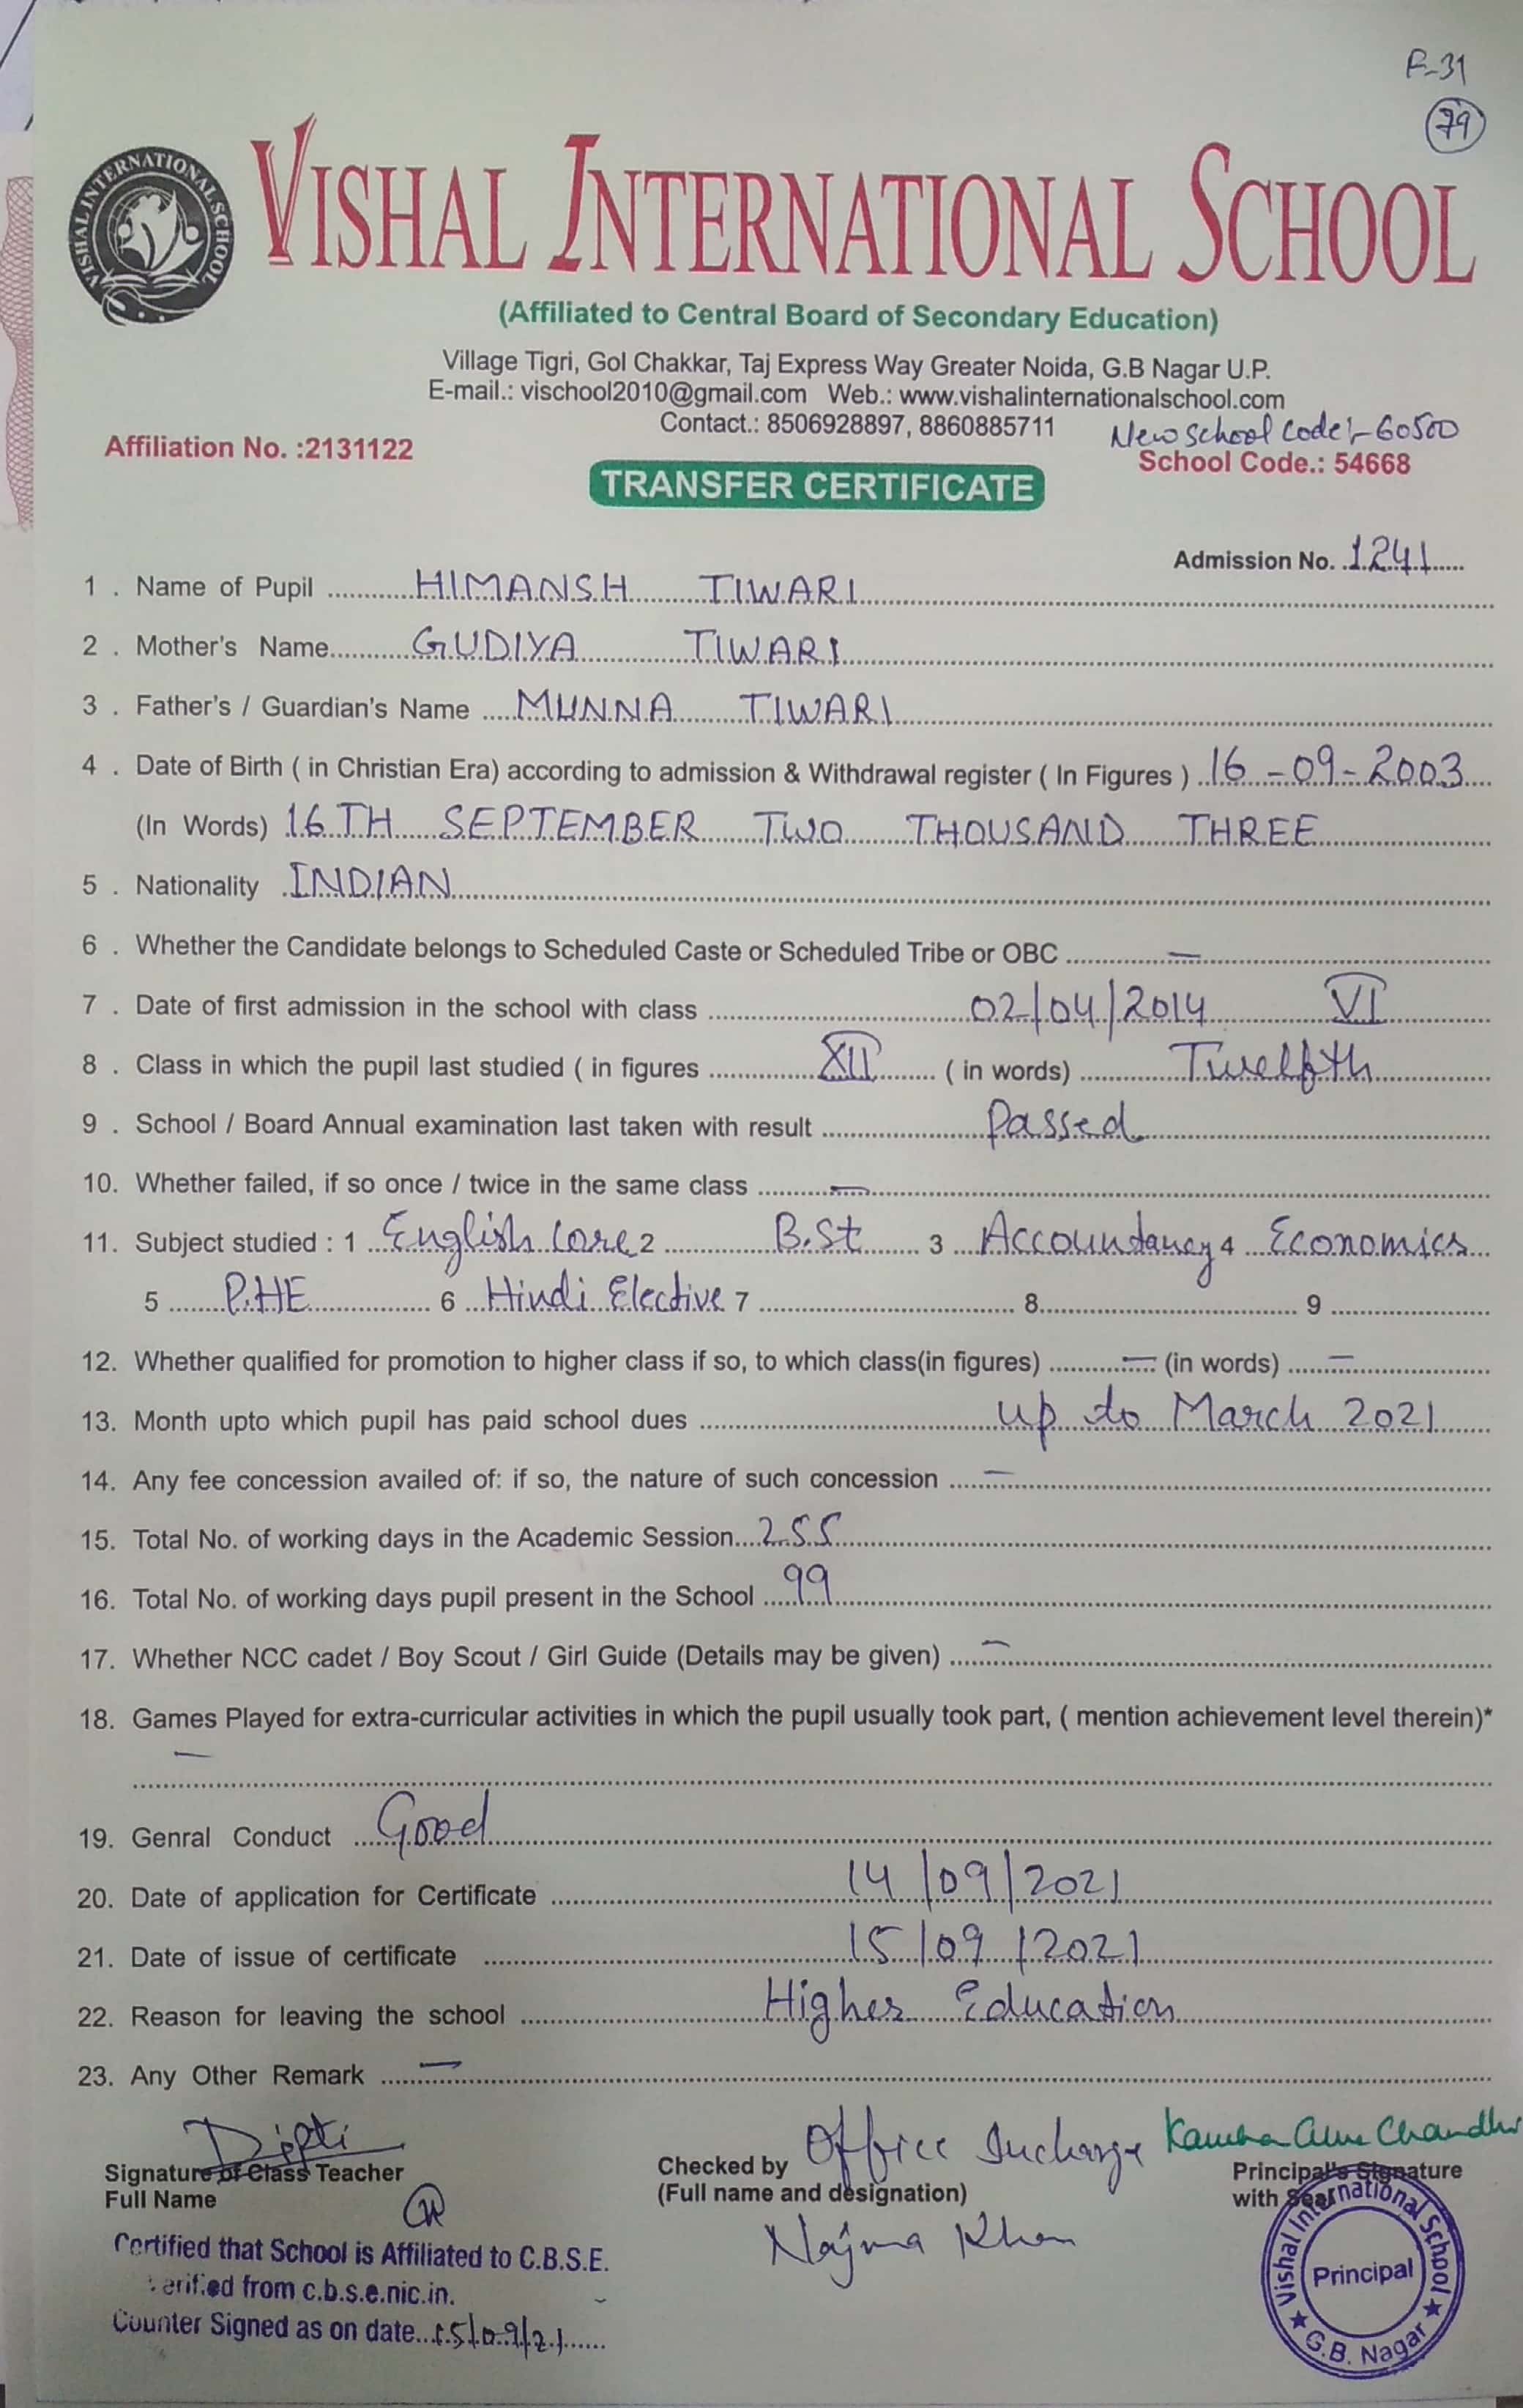 F-31
79
VISHAL INTERNATIONAL SCHOOL
VISHAL INTERNATIONAL SCHOOL
(Affiliated to Central Board of Secondary Education)
Village Tigri, Gol Chakkar, Taj Express Way Greater Noida, G.B Nagar U.P.
E-mail.: vischool2010@gmail.com Web.: www.vishalinternationalschool.com
Contact.: 8506928897, 8860885711
New School Code:- 60500
Affiliation No. :2131122
School Code.: 54668
TRANSFER CERTIFICATE
Admission No. 1241
1 . Name of Pupil HIMANSH TIWARI
2 . Mother's Name GUDIYA TIWARI
3 . Father's / Guardian's Name MUNNA TIWARI
4 . Date of Birth ( in Christian Era) according to admission & Withdrawal register ( In Figures ) 16-09-2003
(In Words) 16TH SEPTEMBER TWO THOUSAND THREE
5 . Nationality INDIAN
6 . Whether the Candidate belongs to Scheduled Caste or Scheduled Tribe or OBC —
7 . Date of first admission in the school with class 02/04/2014 VI
8 . Class in which the pupil last studied ( in figures XII ( in words) Twelfth
9 . School / Board Annual examination last taken with result Passed
10. Whether failed, if so once / twice in the same class —
11. Subject studied : 1 English Core 2 B.St 3 Accountancy 4 Economics
5 P.HE 6 Hindi Elective 7 8 9
12. Whether qualified for promotion to higher class if so, to which class(in figures) — (in words) —
13. Month upto which pupil has paid school dues up to March 2021
14. Any fee concession availed of: if so, the nature of such concession —
15. Total No. of working days in the Academic Session 255
16. Total No. of working days pupil present in the School 99
17. Whether NCC cadet / Boy Scout / Girl Guide (Details may be given) —
18. Games Played for extra-curricular activities in which the pupil usually took part, ( mention achievement level therein)*
—
19. Genral Conduct Good
20. Date of application for Certificate 14/09/2021
21. Date of issue of certificate 15/09/2021
22. Reason for leaving the school Higher Education
23. Any Other Remark —
Dipti
Signature of Class Teacher
Full Name
Checked by Office Incharge
(Full name and designation)
Najma Khan
Chandh
Principal's Signature
with Seal
Certified that School is Affiliated to C.B.S.E.
verified from c.b.s.e.nic.in.
Counter Signed as on date 15/09/21
Vishal International School
Principal
★ G.B. Nagar ★